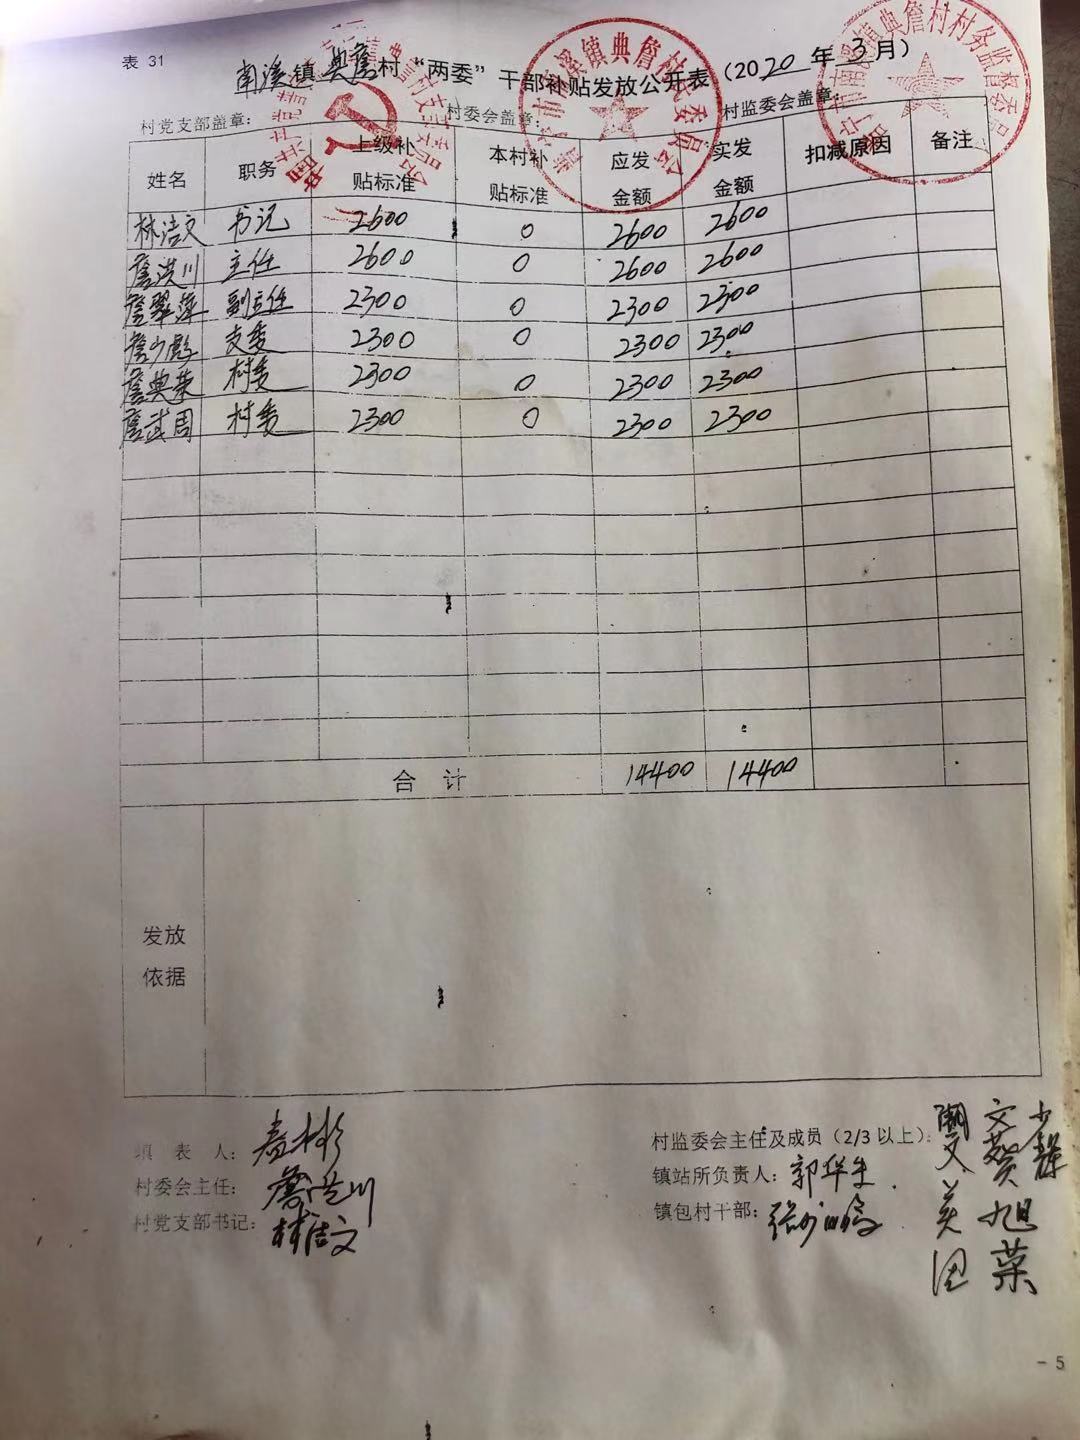 表 31
南溪镇典詹村“两委”干部补贴发放公开表（2020年3月）
村党支部盖章： 村委会盖章： 村监委会盖章：
姓名 职务 上级补贴标准 本村补贴标准 应发金额 实发金额 扣减原因 备注
林洁文 书记 2600 0 2600 2600
詹洪川 主任 2600 0 2600 2600
詹翠萍 副主任 2300 0 2300 2300
詹少彪 支委 2300 0 2300 2300
詹典荣 村委 2300 0 2300 2300
詹武周 村委 2300 0 2300 2300
合 计 14400 14400
发放依据
填 表 人：
村委会主任：詹洪川
村党支部书记：林洁文
村监委会主任及成员（2/3 以上）：
镇站所负责人：郭华生
镇包村干部：
- 5